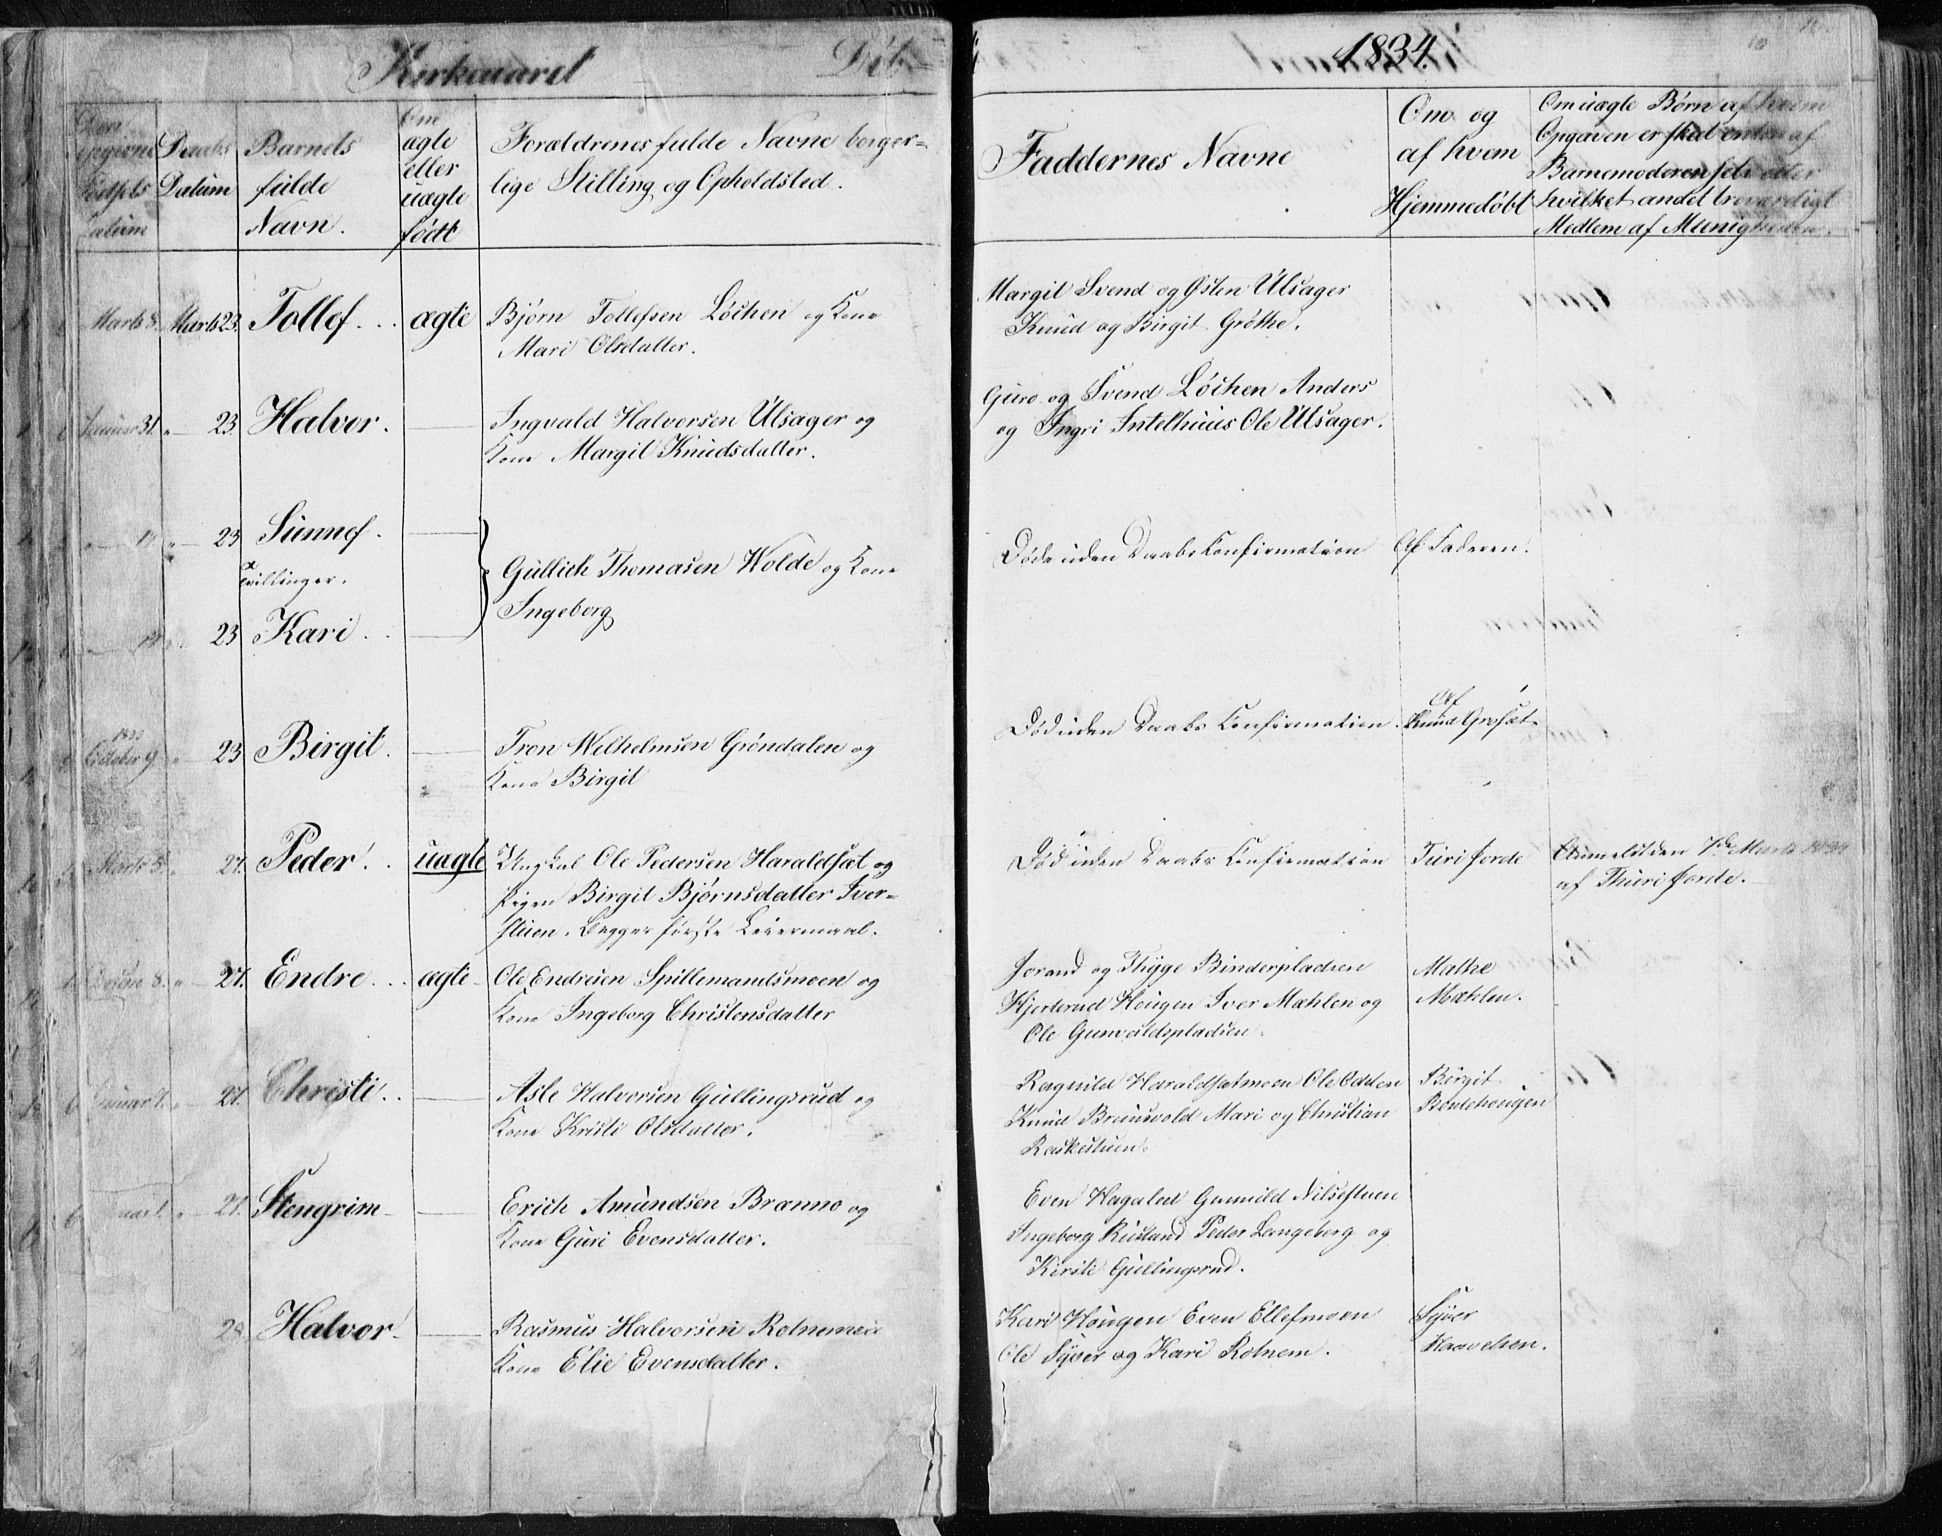 Kirkeaaret
Døbte
1834.
Den opgivne Fødsels Datum
Daabs Datum
Barnets fulde Navn.
Om ægte eller uægte født
Forældrenes fulde Navne borger=
lige Stilling og Opholdsted.
Faddernes Navne
Om og af hvem Hjemmedøbt
Om uægte Børn af hvem
Opgaven er skeet enten af
Barnemoderen selv eller
hvilket andet troværdigt
Medlem af Menigheden.
Marts 8. Marts 23. Tollef. ægte Bjørn Tollefsen Løchen og Kone
Mari Olsdatter.
Margit Svend og Østen Ulsager
Knud og Birgit Grøthe.
Januar 31. " 23. Halvor. Ingvald Halvorsen Ulsager og
Kone Margit Knudsdatter.
Guro og Svend Løchen Anders
og Ingri Intelhuus Ole Ulsager.
" 23 Sunnef.
Tvillinger.
Gullich Thomasen Wolde og Kone
Ingeborg
Døde uden Daabs Confirmation Af Faderen.
23 Kari
October 9 " 23 Birgit. Tron Wilhelmsen Grøndalen og
Kone Birgit
Død uden Daabs Confirmation. Af Knud Grosæt
Marts 5. 27. Peder. uægte Ungkal Ole Pedersen Haraldsæt og
Pigen Birgit Bjørnsdatter Iver=
stuen. Begges første Leiermaal.
Død uden Daabs Confirmation Turi Jorde Anmeldt den 7de Marts 1834
af Thuri Jorde.
8. " 27. Endre. ægte Ole Endresen Spillemandsmoen og
Kone Ingeborg Christensdatter
Jorand og Thyge Binderpladsen
Hjerterud Hougen Iver Mæhlen og
Ole Gunvaldspladsen
Mathe
Mæhlen.
Januar " 27. Christi. Asle Halvorsen Gullingsrud og
Kone Kristi Olsdatter.
Ragnild Haraldsætmoen Ole Odden
Knud Bruusvold Mari og Christian
Raskestuen.
Birgit
Bentehougen
" 27. Stengrim Erich Amundsen Brænno og
Kone Guri Evensdatter.
Even Hagaled Gunnild Nilsestuen
Ingeborg Rustand Peder Langeberg og
Kirsti Gullingsrud.
28. Halvor Rasmus Halvorsen Rotneme
Kone Elie Evensdatter.
Kari Hougen Even Ellefmoen
Ole Syver og Kari Rotnem.
Syver
Haavelsen.